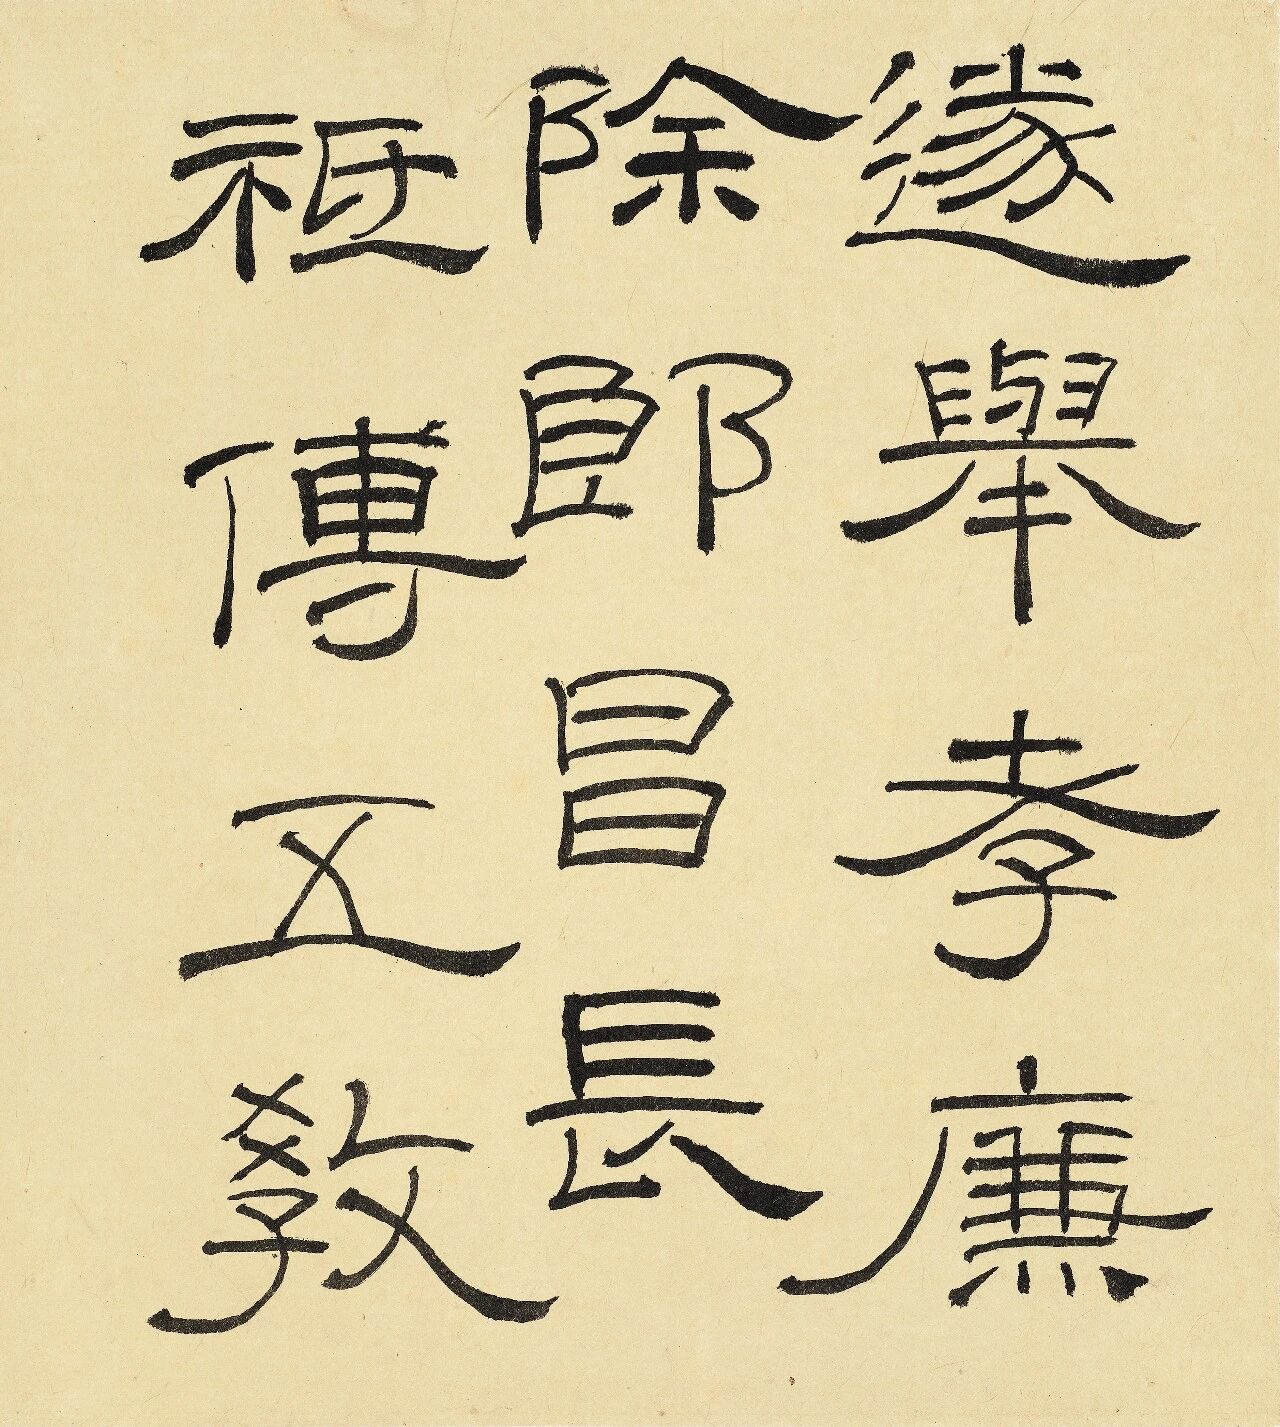 遂舉孝廉
除郎昌長
祗傅五敎